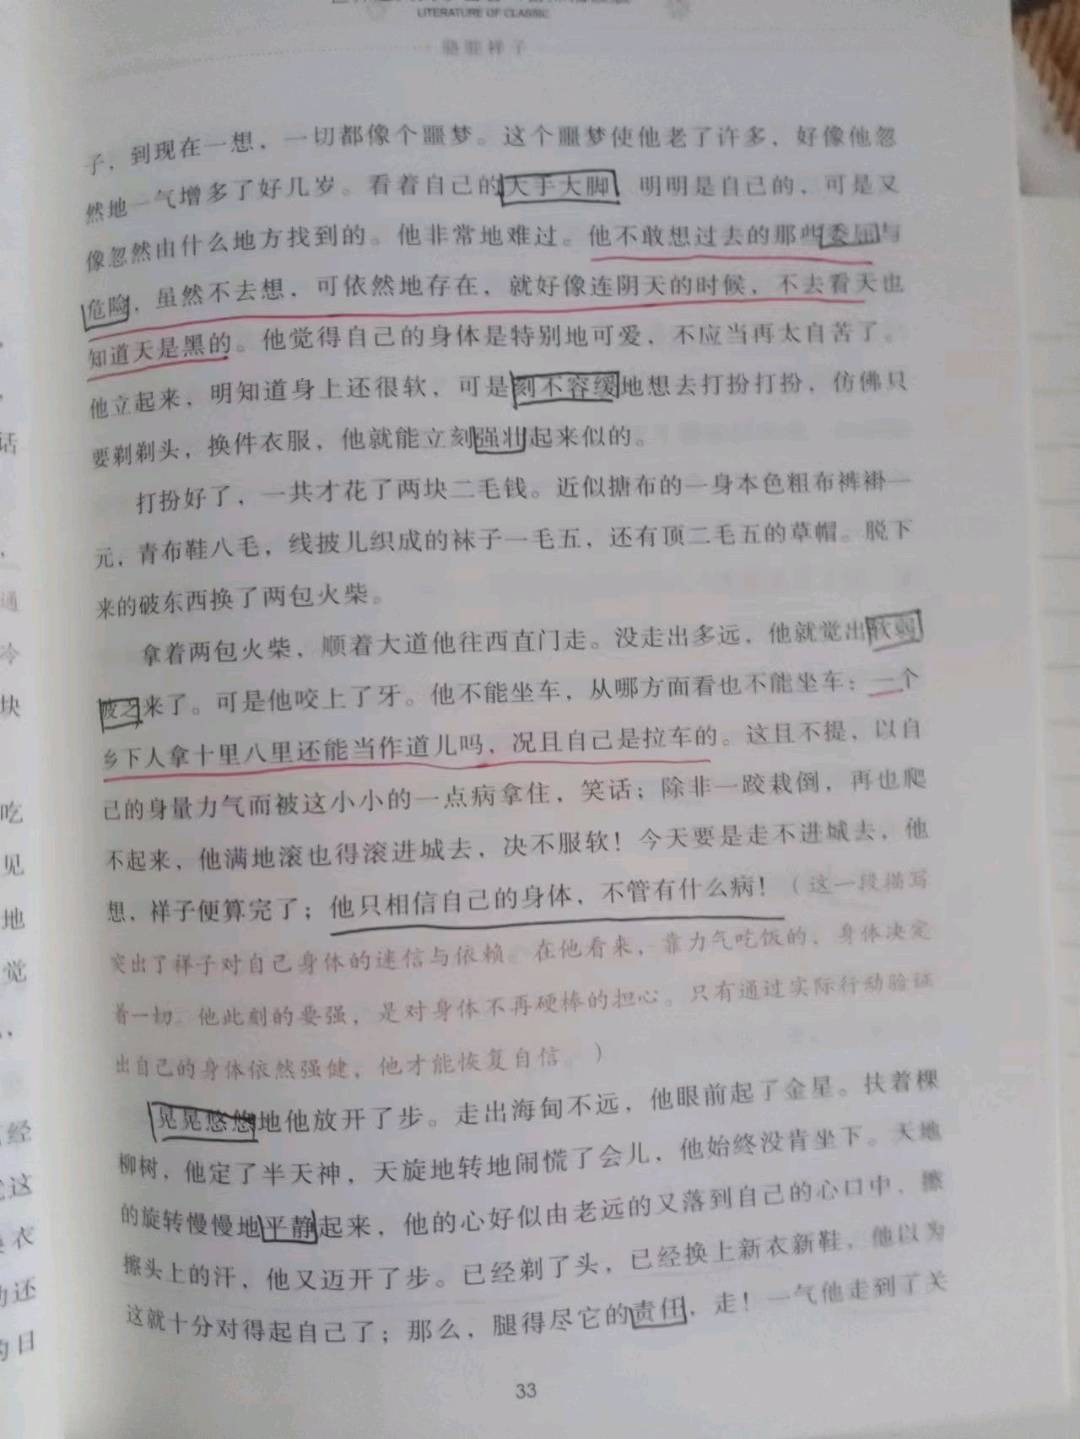 LITERATURE OF CLASSIC
骆驼祥子
子，到现在一想，一切都像个噩梦。这个噩梦使他老了许多，好像他忽
然地一气增多了好几岁。看着自己的大手大脚，明明是自己的，可是又
像忽然由什么地方找到的。他非常地难过。他不敢想过去的那些委屈与
危险，虽然不去想，可依然地存在，就好像连阴天的时候，不去看天也
知道天是黑的。他觉得自己的身体是特别地可爱，不应当再太自苦了。
他立起来，明知道身上还很软，可是刻不容缓地想去打扮打扮，仿佛只
要剃剃头，换件衣服，他就能立刻强壮起来似的。
打扮好了，一共才花了两块二毛钱。近似搪布的一身本色粗布裤褂一
元，青布鞋八毛，线披儿织成的袜子一毛五，还有顶二毛五的草帽。脱下
来的破东西换了两包火柴。
拿着两包火柴，顺着大道他往西直门走。没走出多远，他就觉出软弱
疲乏来了。可是他咬上了牙。他不能坐车，从哪方面看也不能坐车：一个
乡下人拿十里八里还能当作道儿吗，况且自己是拉车的。这且不提，以自
己的身量力气而被这小小的一点病拿住，笑话；除非一跤栽倒，再也爬
不起来，他满地滚也得滚进城去，决不服软！今天要是走不进城去，他
想，祥子便算完了；他只相信自己的身体，不管有什么病！（这一段描写
突出了祥子对自己身体的迷信与依赖。在他看来，靠力气吃饭的，身体决定
着一切。他此刻的要强，是对身体不再硬棒的担心。只有通过实际行动验证
出自己的身体依然强健，他才能恢复自信。）
晃晃悠悠地他放开了步。走出海甸不远，他眼前起了金星。扶着棵
柳树，他定了半天神，天旋地转地闹慌了会儿，他始终没肯坐下。天地
的旋转慢慢地平静起来，他的心好似由老远的又落到自己的心口中，擦
擦头上的汗，他又迈开了步。已经剃了头，已经换上新衣新鞋，他以为
这就十分对得起自己了；那么，腿得尽它的责任，走！一气他走到了关
33
话
通
冷
块
吃
见
地
觉
经
这
衣
还
日